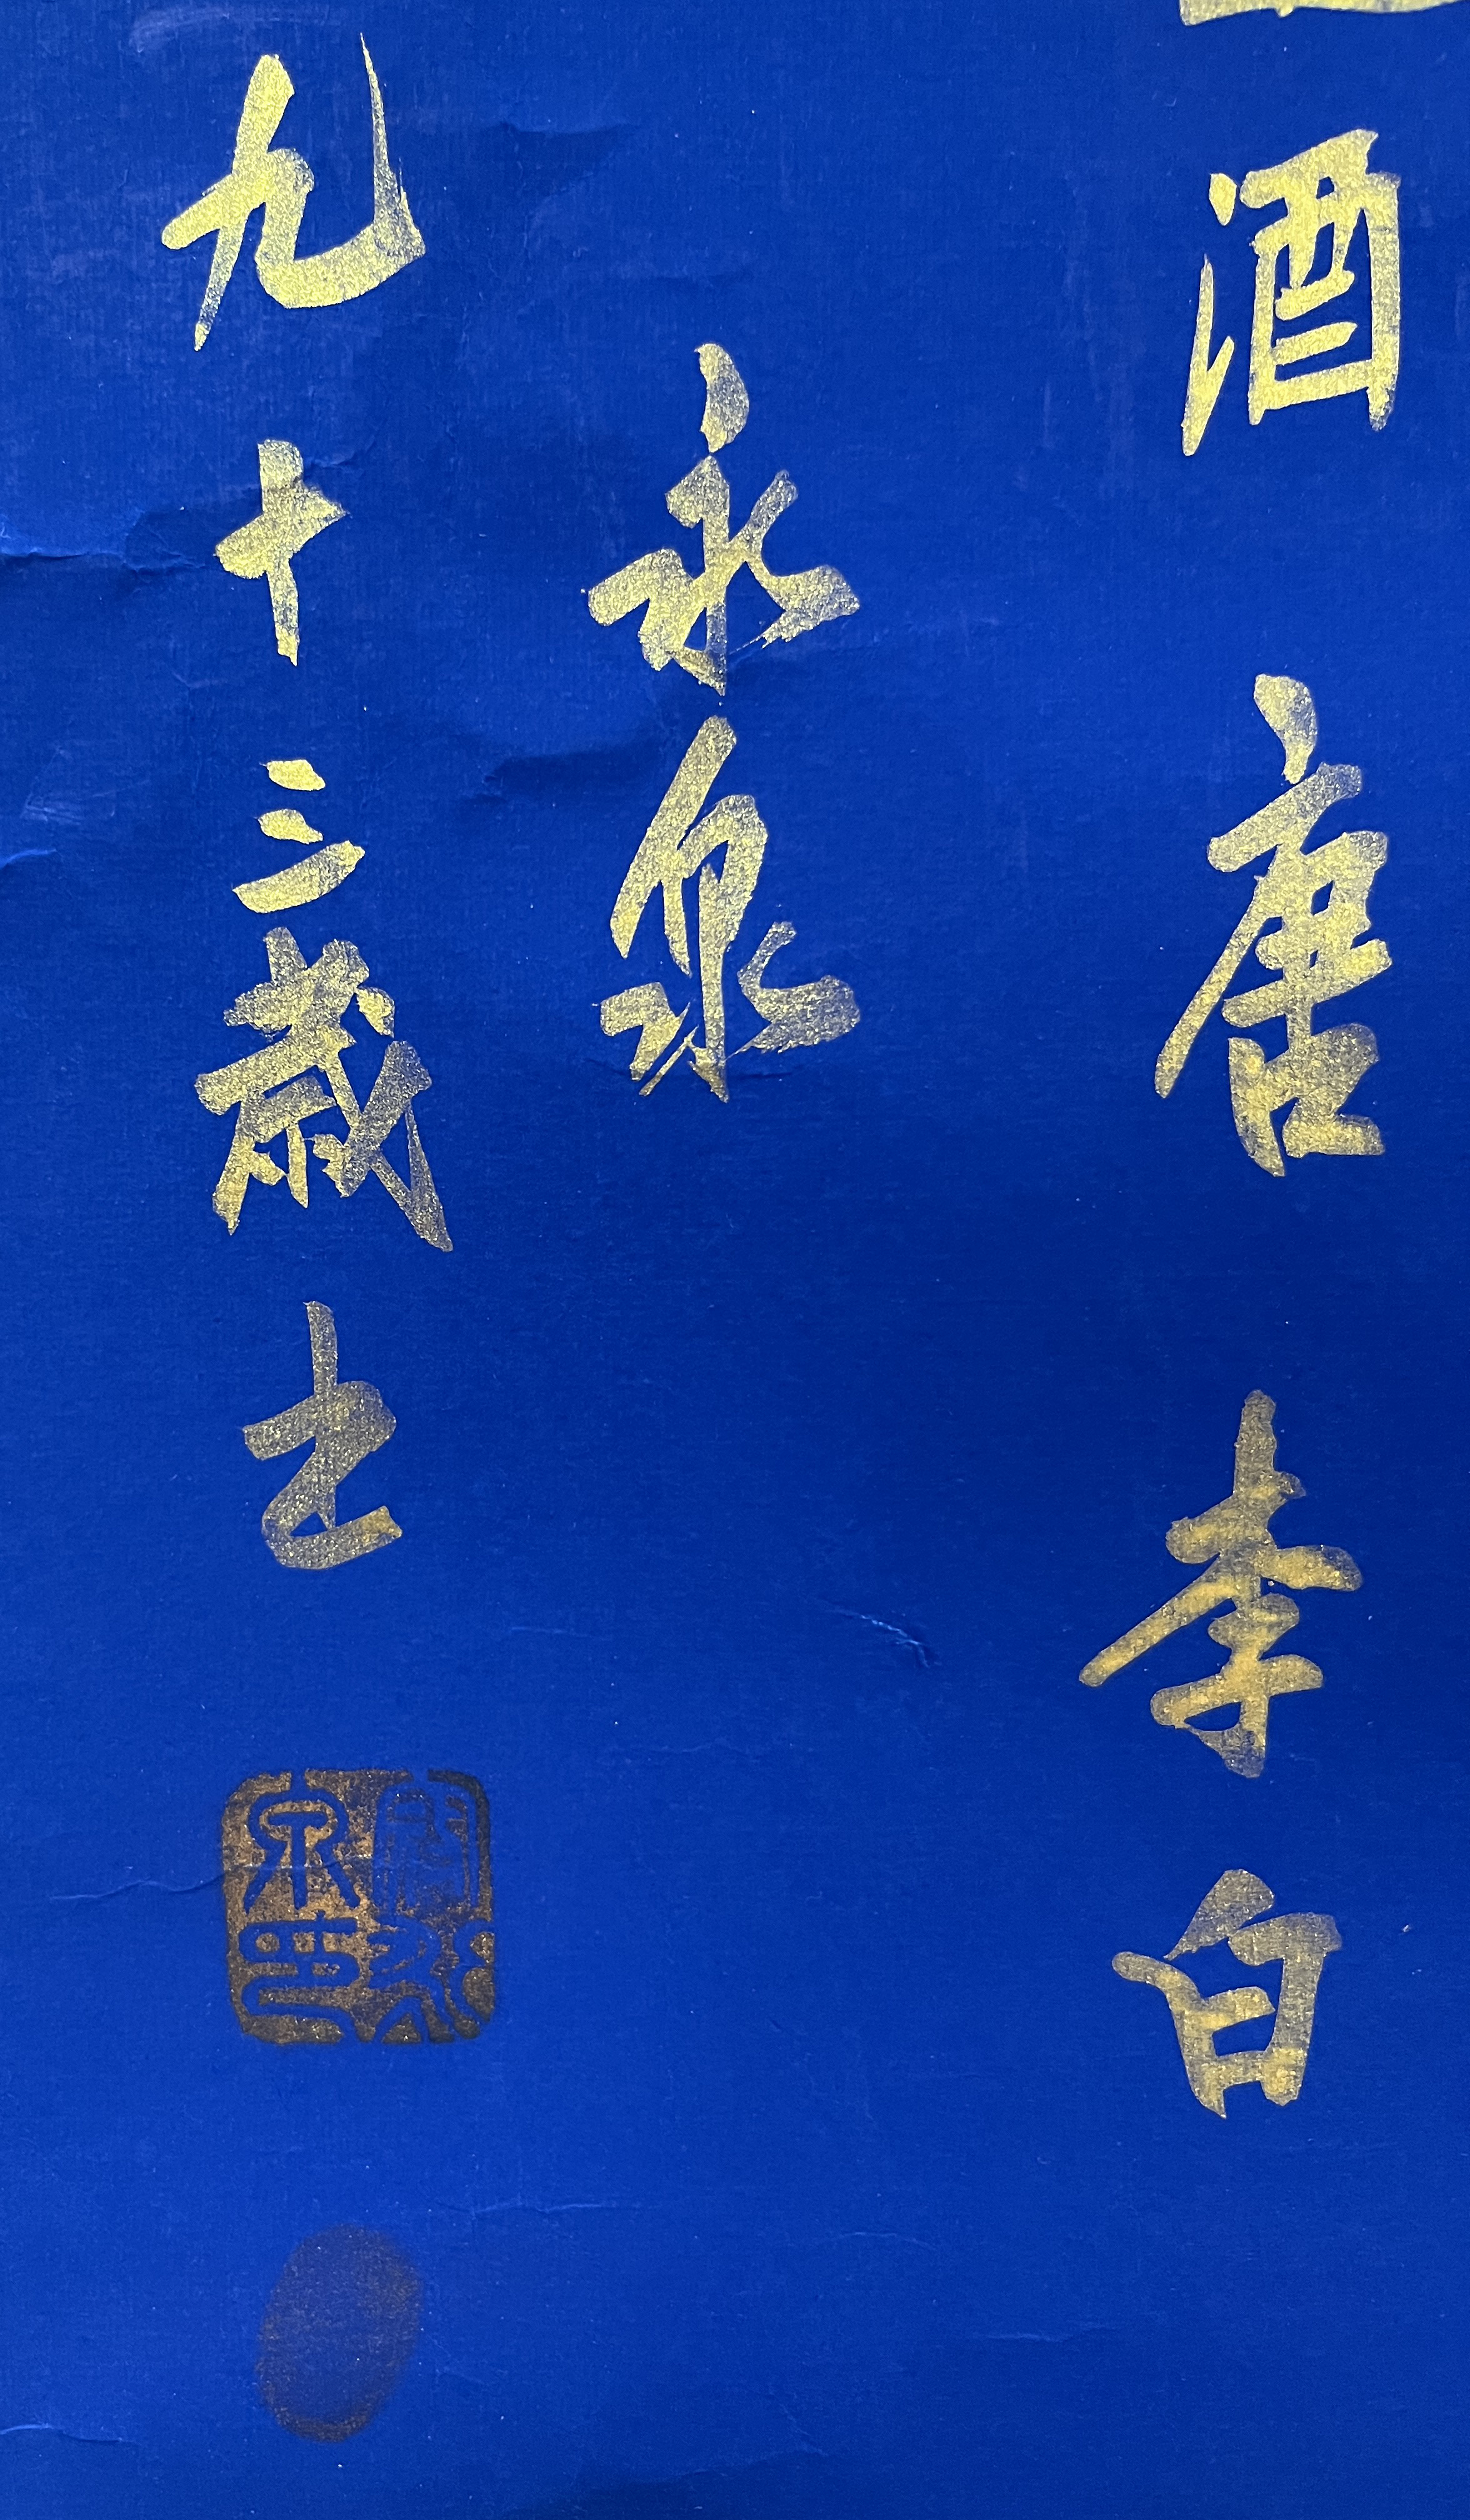 酒 唐 李白
永泉
九十三歲書